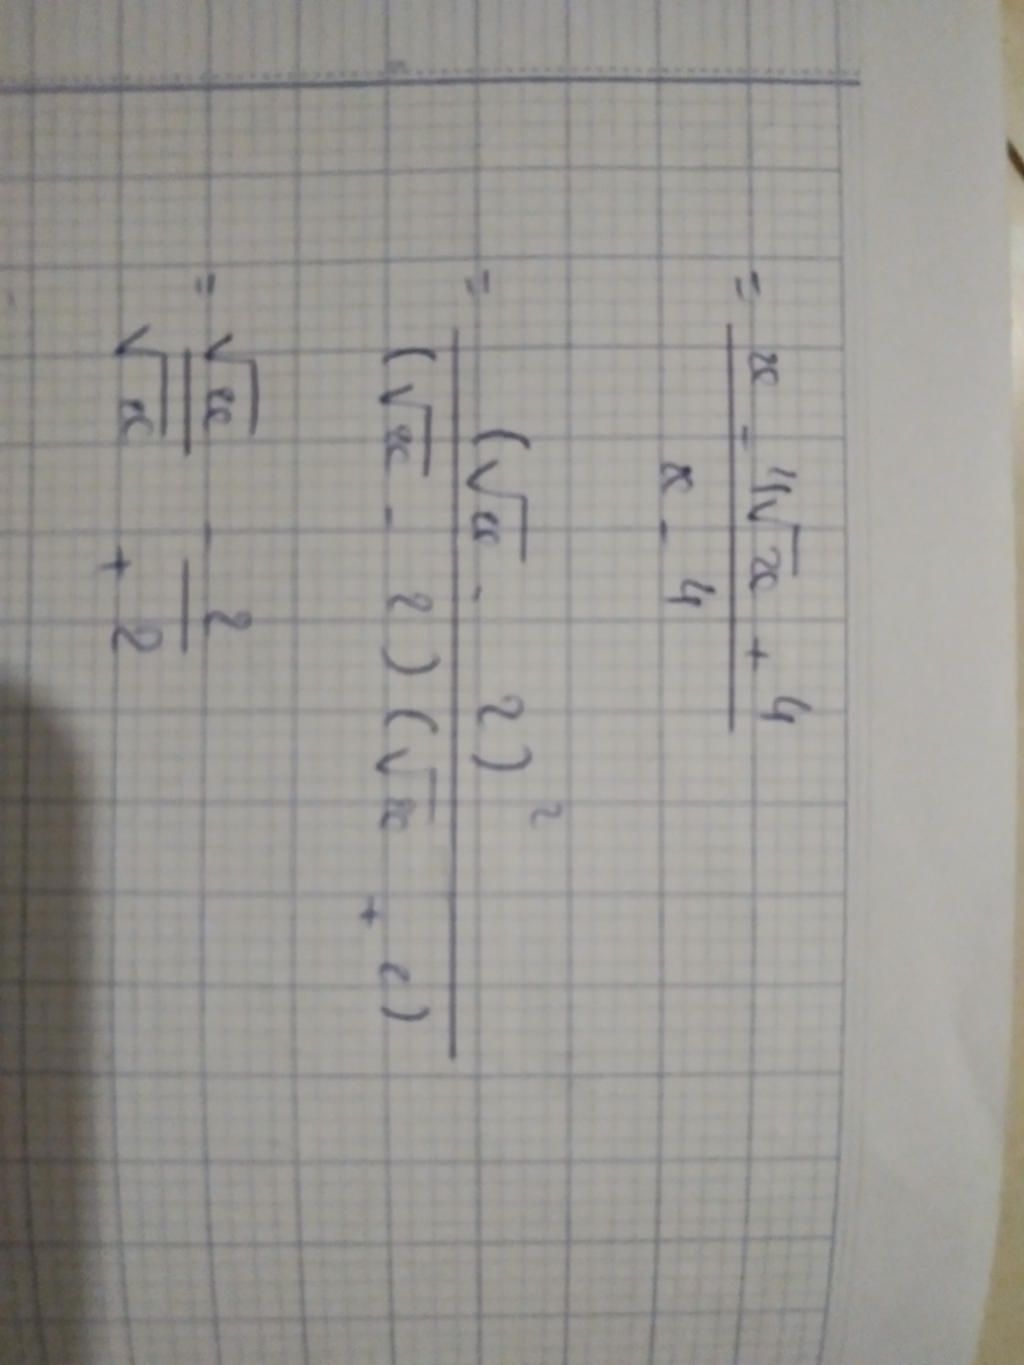 = x - 4√x + 4
x - 4
= (√x - 2)²
(√x - 2)(√x + 2)
= √x - 2
√x + 2